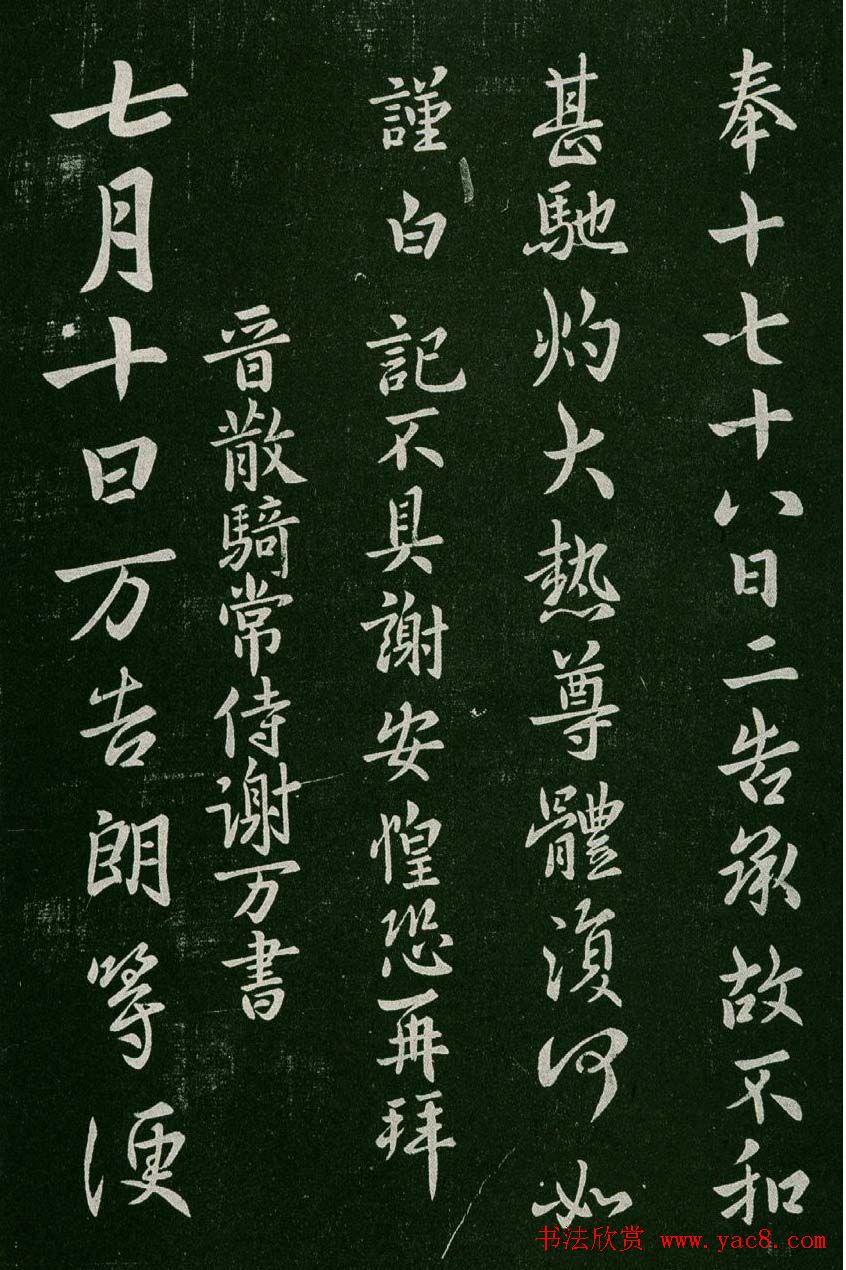 奉十七十八日二告承故不和
甚馳灼大热尊體復何如
謹白記不具謝安惶恐再拜
晉散騎常侍謝万書
七月十日万告朗等便
书法欣赏 www.yac8.com